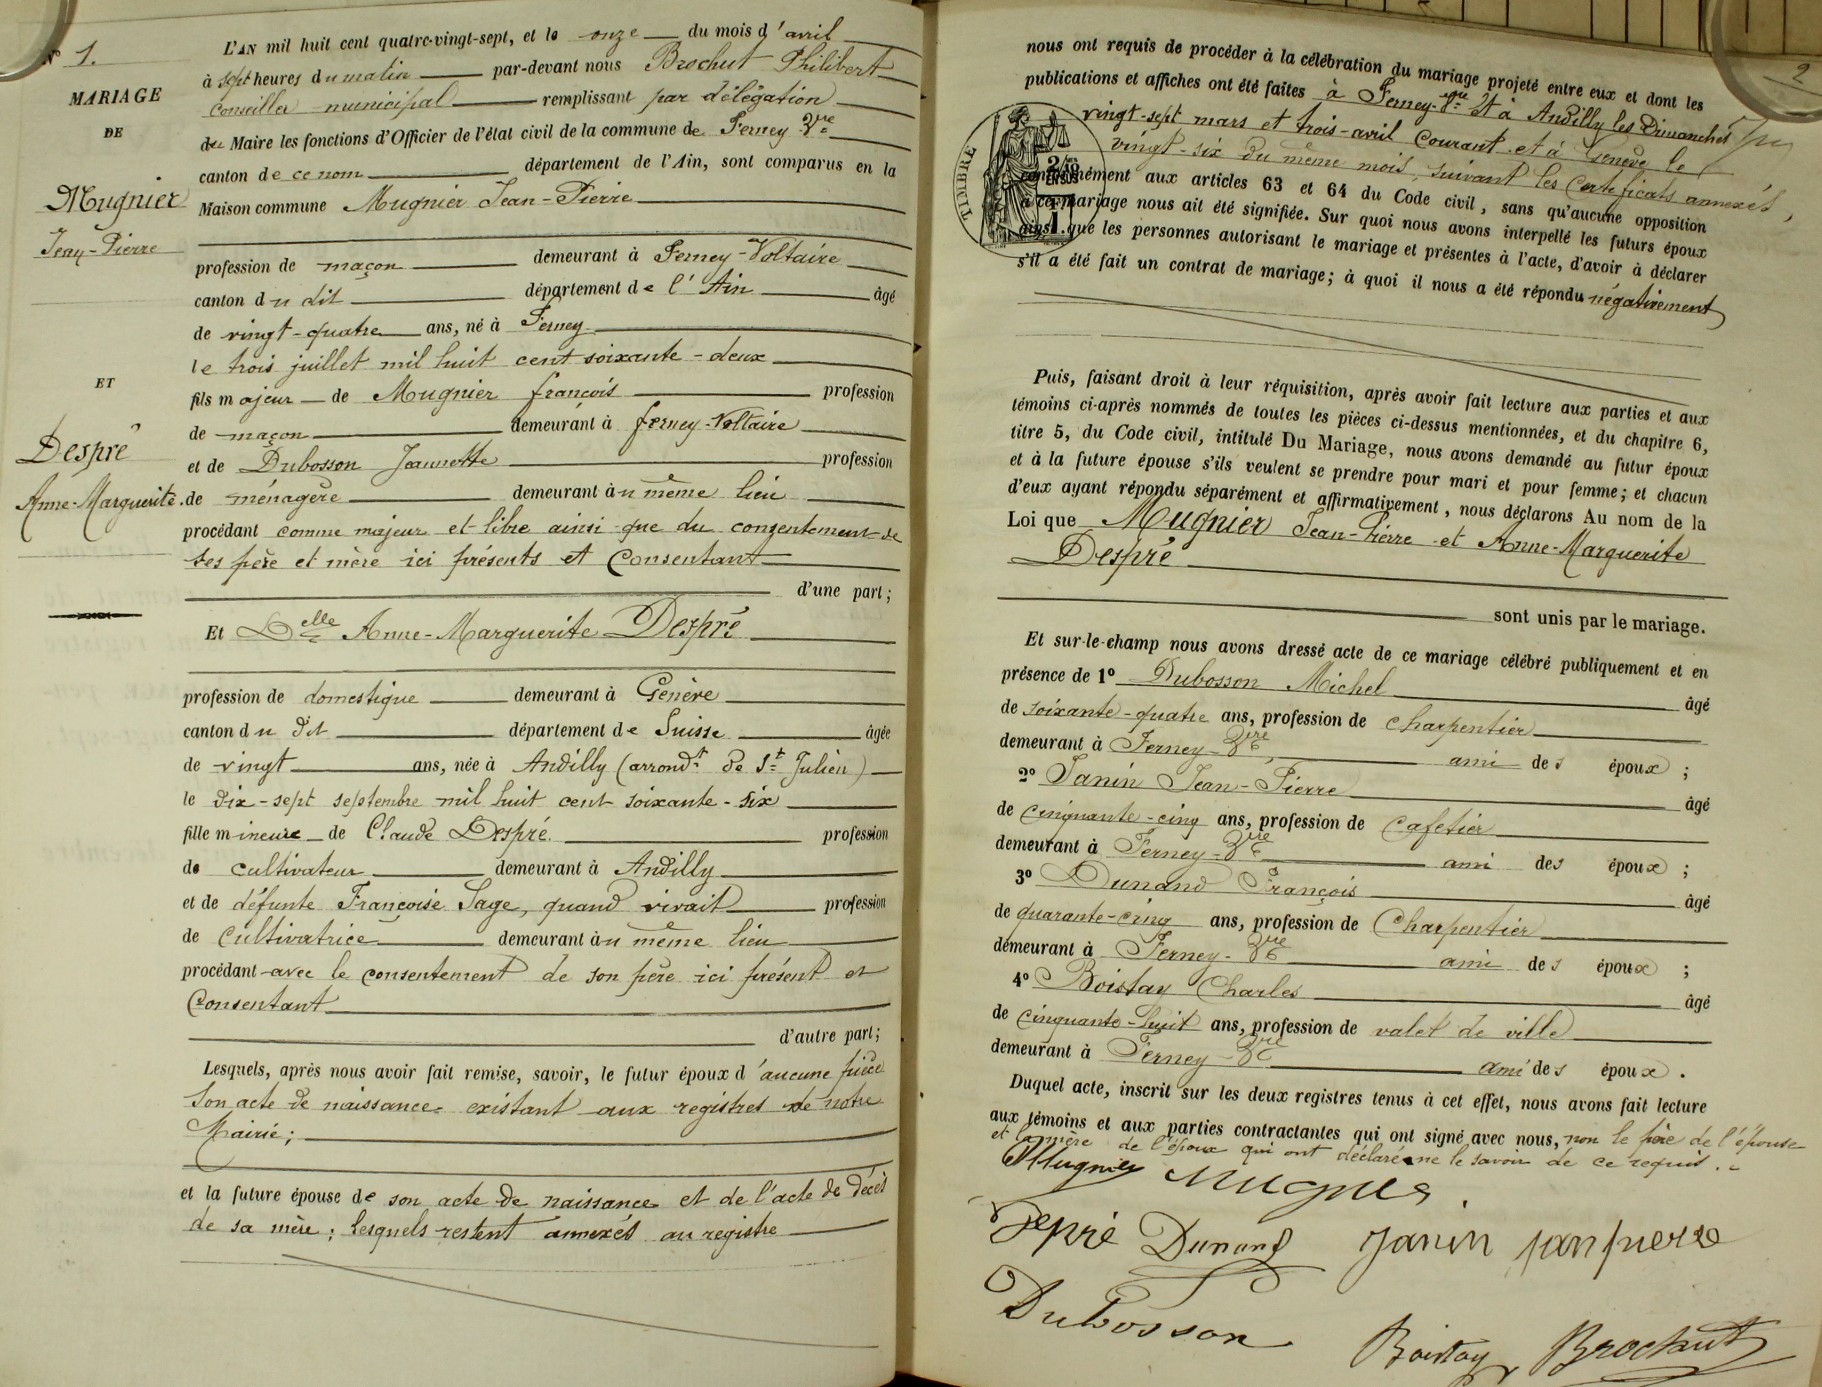 N° 1.
MARIAGE
DE
Mugnier
Jean-Pierre
ET
Despré
Anne-Marguerite.
L'AN mil huit cent quatre-vingt-sept, et le onze du mois d'avril
à sept heures du matin par-devant nous Brochut Philibert
Conseiller municipal remplissant par délégation
du Maire les fonctions d'Officier de l'état civil de la commune de Ferney-Vre
canton de ce nom département de l'Ain, sont comparus en la
Maison commune Mugnier Jean-Pierre
profession de maçon demeurant à Ferney-Voltaire
canton du dit département de l'Ain âgé
de vingt-quatre ans, né à Ferney
le trois juillet mil huit cent soixante-deux
fils majeur de Mugnier françois profession
de maçon demeurant à ferney-Voltaire
et de Dubosson Jeannette profession
de ménagère demeurant àu même lieu
procédant comme majeur et libre ainsi que du consentement de
ses père et mère ici présents et Consentant
d'une part;
Et Delle Anne-Marguerite Despré
profession de domestique demeurant à Genève
canton du dit département de Suisse âgée
de vingt ans, née à Andilly (arrondt de St Julien)
le dix-sept septembre mil huit cent soixante-six
fille mineure de Claude Despré profession
de cultivateur demeurant à Andilly
et de défunte Françoise Sage, quand vivait profession
de Cultivatrice demeurant àu même lieu
procédant avec le consentement de son père ici présent et
Consentant
d'autre part;
Lesquels, après nous avoir fait remise, savoir, le futur époux d'aucune pièce
Son acte de naissance existant aux registres de notre
Mairie;
et la future épouse de son acte de naissance et de l'acte de décès
de sa mère; lesquels restent annexés au registre
2
nous ont requis de procéder à la célébration du mariage projeté entre eux et dont les
publications et affiches ont été faites à Ferney-Vre et à Andilly les Dimanches
vingt-sept mars et trois avril Courant et à Genève le
vingt-six du même mois, suivant les Certificats annexés,
conformément aux articles 63 et 64 du Code civil, sans qu'aucune opposition
à ce mariage nous ait été signifiée. Sur quoi nous avons interpellé les futurs époux
ainsi que les personnes autorisant le mariage et présentes à l'acte, d'avoir à déclarer
s'il a été fait un contrat de mariage; à quoi il nous a été répondu négativement
TIMBRE
Puis, faisant droit à leur réquisition, après avoir fait lecture aux parties et aux
témoins ci-après nommés de toutes les pièces ci-dessus mentionnées, et du chapitre 6,
titre 5, du Code civil, intitulé Du Mariage, nous avons demandé au futur époux
et à la future épouse s'ils veulent se prendre pour mari et pour femme; et chacun
d'eux ayant répondu séparément et affirmativement, nous déclarons Au nom de la
Loi que Mugnier Jean-Pierre et Anne-Marguerite
Despré
sont unis par le mariage.
Et sur-le-champ nous avons dressé acte de ce mariage célébré publiquement et en
présence de 1° Dubosson Michel âgé
de soixante-quatre ans, profession de Charpentier
demeurant à Ferney-Vre ami des époux;
2° Janin Jean-Pierre âgé
de Cinquante-cinq ans, profession de Cafetier
demeurant à Ferney-Vre ami des époux;
3° Dunand François âgé
de quarante-cinq ans, profession de Charpentier
demeurant à Ferney-Vre ami des époux;
4° Boistay Charles âgé
de cinquante-huit ans, profession de valet de ville
demeurant à Ferney-Vre ami des époux.
Duquel acte, inscrit sur les deux registres tenus à cet effet, nous avons fait lecture
aux témoins et aux parties contractantes qui ont signé avec nous, non le père de l'épouse
et la mère de l'époux qui ont déclaré ne le savoir de ce requis.
Mugnier Mugnier
Depré Dunand Janin janpierre
Dubosson
Boistay Brochut